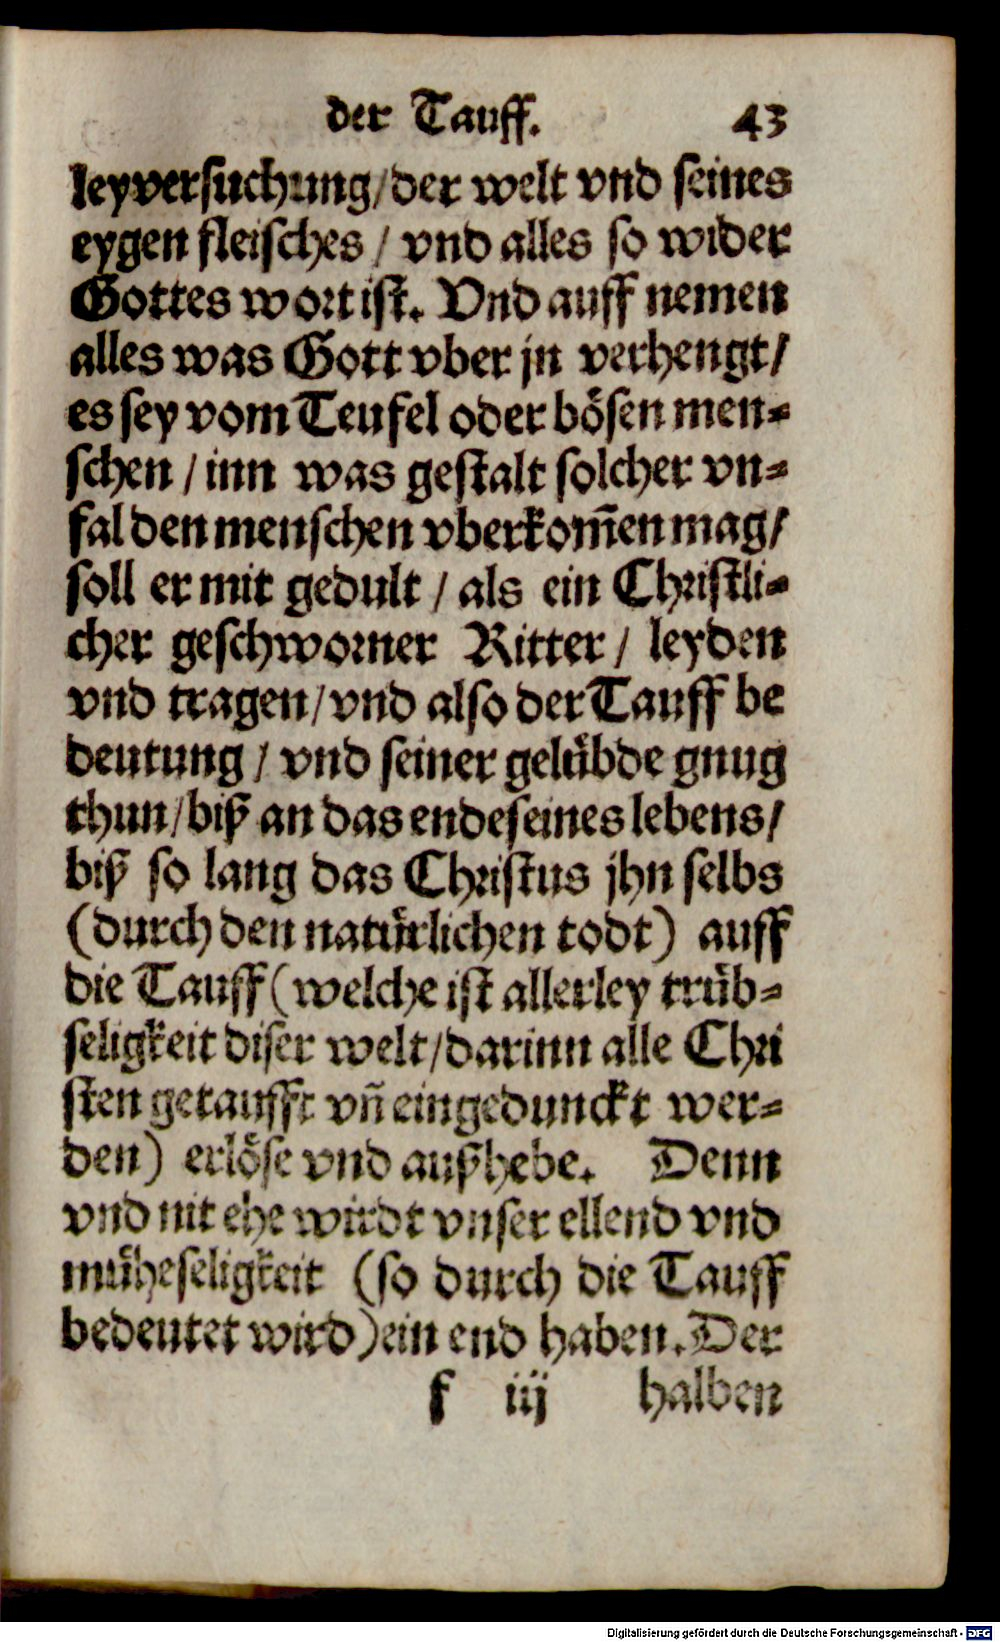 der Tauff. 43
ley versuchung / der welt vnd seines
eygen fleisches / vnd alles so wider
Gottes wort ist. Vnd auff nemen
alles was Gott vber jn verhengt /
es sey vom Teufel oder bösen men⸗
schen / inn was gestalt solcher vn⸗
fal den menschen vberkom̃en mag /
soll er mit gedult / als ein Christli⸗
cher geschworner Ritter / leyden
vnd tragen / vnd also der Tauff be
deutung / vnd seiner gelübde gnug
thun / biß an das ende seines lebens /
biß so lang das Christus jhn selbs
(durch den natürlichen todt) auff
die Tauff (welche ist allerley trüb⸗
seligkeit diser welt / darinn alle Chri
sten getaufft vñ eingedunckt wer⸗
den) erlöse vnd außhebe. Denn
vnd nit ehe wirdt vnser ellend vnd
müheseligkeit (so durch die Tauff
bedeutet wird) ein end haben. Der
f iij halben
Digitalisierung gefördert durch die Deutsche Forschungsgemeinschaft - DFG